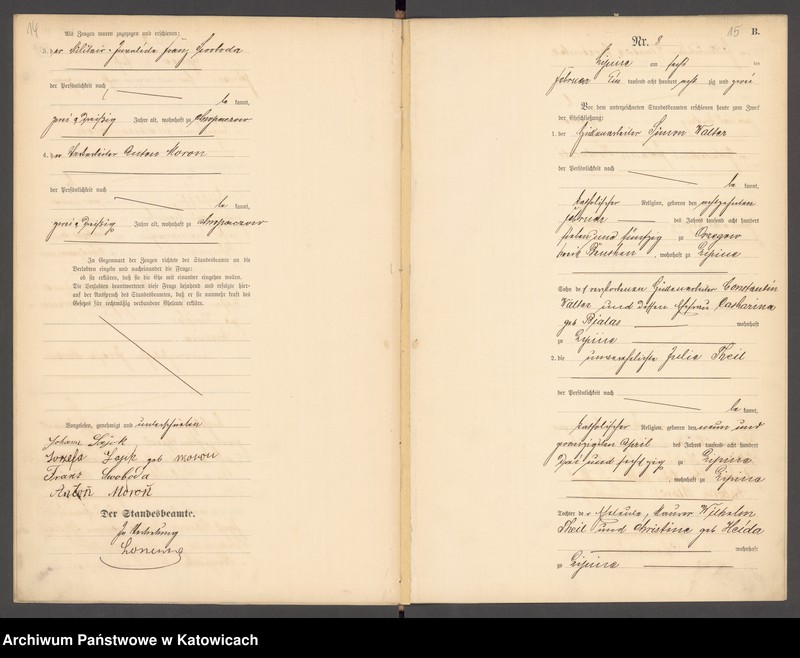 14
Als Zeugen waren zugezogen und erschienen:
3. der Militair-Invalide Franz Swoboda
der Persönlichkeit nach
be kannt,
zwei u Dreißig Jahre alt, wohnhaft zu Chropaczow
4. der Anton Moron
der Persönlichkeit nach
be kannt,
zwei u Dreißig Jahre alt, wohnhaft zu Chropaczow
In Gegenwart der Zeugen richtete der Standesbeamte an die
Verlobten einzeln und nacheinander die Frage:
ob sie erklären, daß sie die Ehe mit einander eingehen wollen.
Die Verlobten beantworteten diese Frage bejahend und erfolgte hier-
auf der Ausspruch des Standesbeamten, daß er sie nunmehr kraft des
Gesetzes für rechtmäßig verbundene Eheleute erkläre.
Vorgelesen, genehmigt und unterschrieben
Johann
Josefa geb Moron
Franz Swoboda
Anton Moron
Der Standesbeamte.
In Vertretung
15 B.
Nr. 8
Lipine am sechs ten
Februar Ein tausend acht hundert acht zig und zwei
Vor dem unterzeichneten Standesbeamten erschienen heute zum Zweck
der Eheschließung:
1. der Hüttenarbeiter Simon Walter
der Persönlichkeit nach
be kannt,
katholischer Religion, geboren den achtzehnten
Februar des Jahres tausend acht hundert
sieben und fünfzig zu Orzegow
Kreis Beuthen, wohnhaft zu Lipine
Sohn des verstorbenen Hüttenarbeiter Constantin
Walter und dessen Ehefrau Catharina
geb Bialas wohnhaft
zu Lipine
2. die unverehelichte Julie Theil
der Persönlichkeit nach
be kannt,
katholischer Religion, geboren den neun und
zwanzigsten April des Jahres tausend acht hundert
drei und sechzig zu Lipine
, wohnhaft zu Lipine
Tochter der Eheleute, Maurer Wilhelm
Theil und Christine geb Heida
wohnhaft
zu Lipine
Archiwum Państwowe w Katowicach